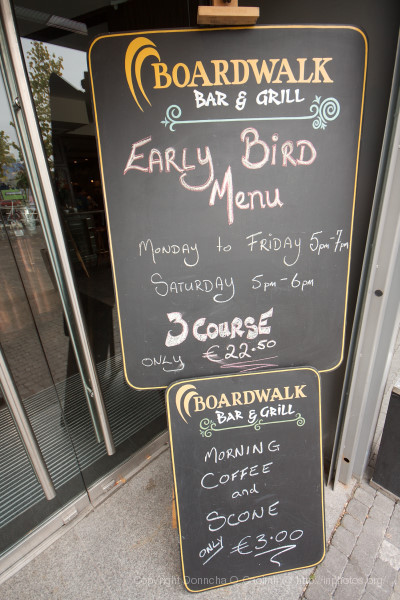 BOARDWALK
BAR & GRILL
EARLY BIRD
MENU
MONDAY to FRIDAY 5pm-7pm
SATURDAY 5pm-6pm
3 COURSE
ONLY €22.50
BOARDWALK
BAR & GRILL
MORNING
COFFEE
and
SCONE
ONLY €3.00
Copyright Donncha O Caoimh http://inphotos.org